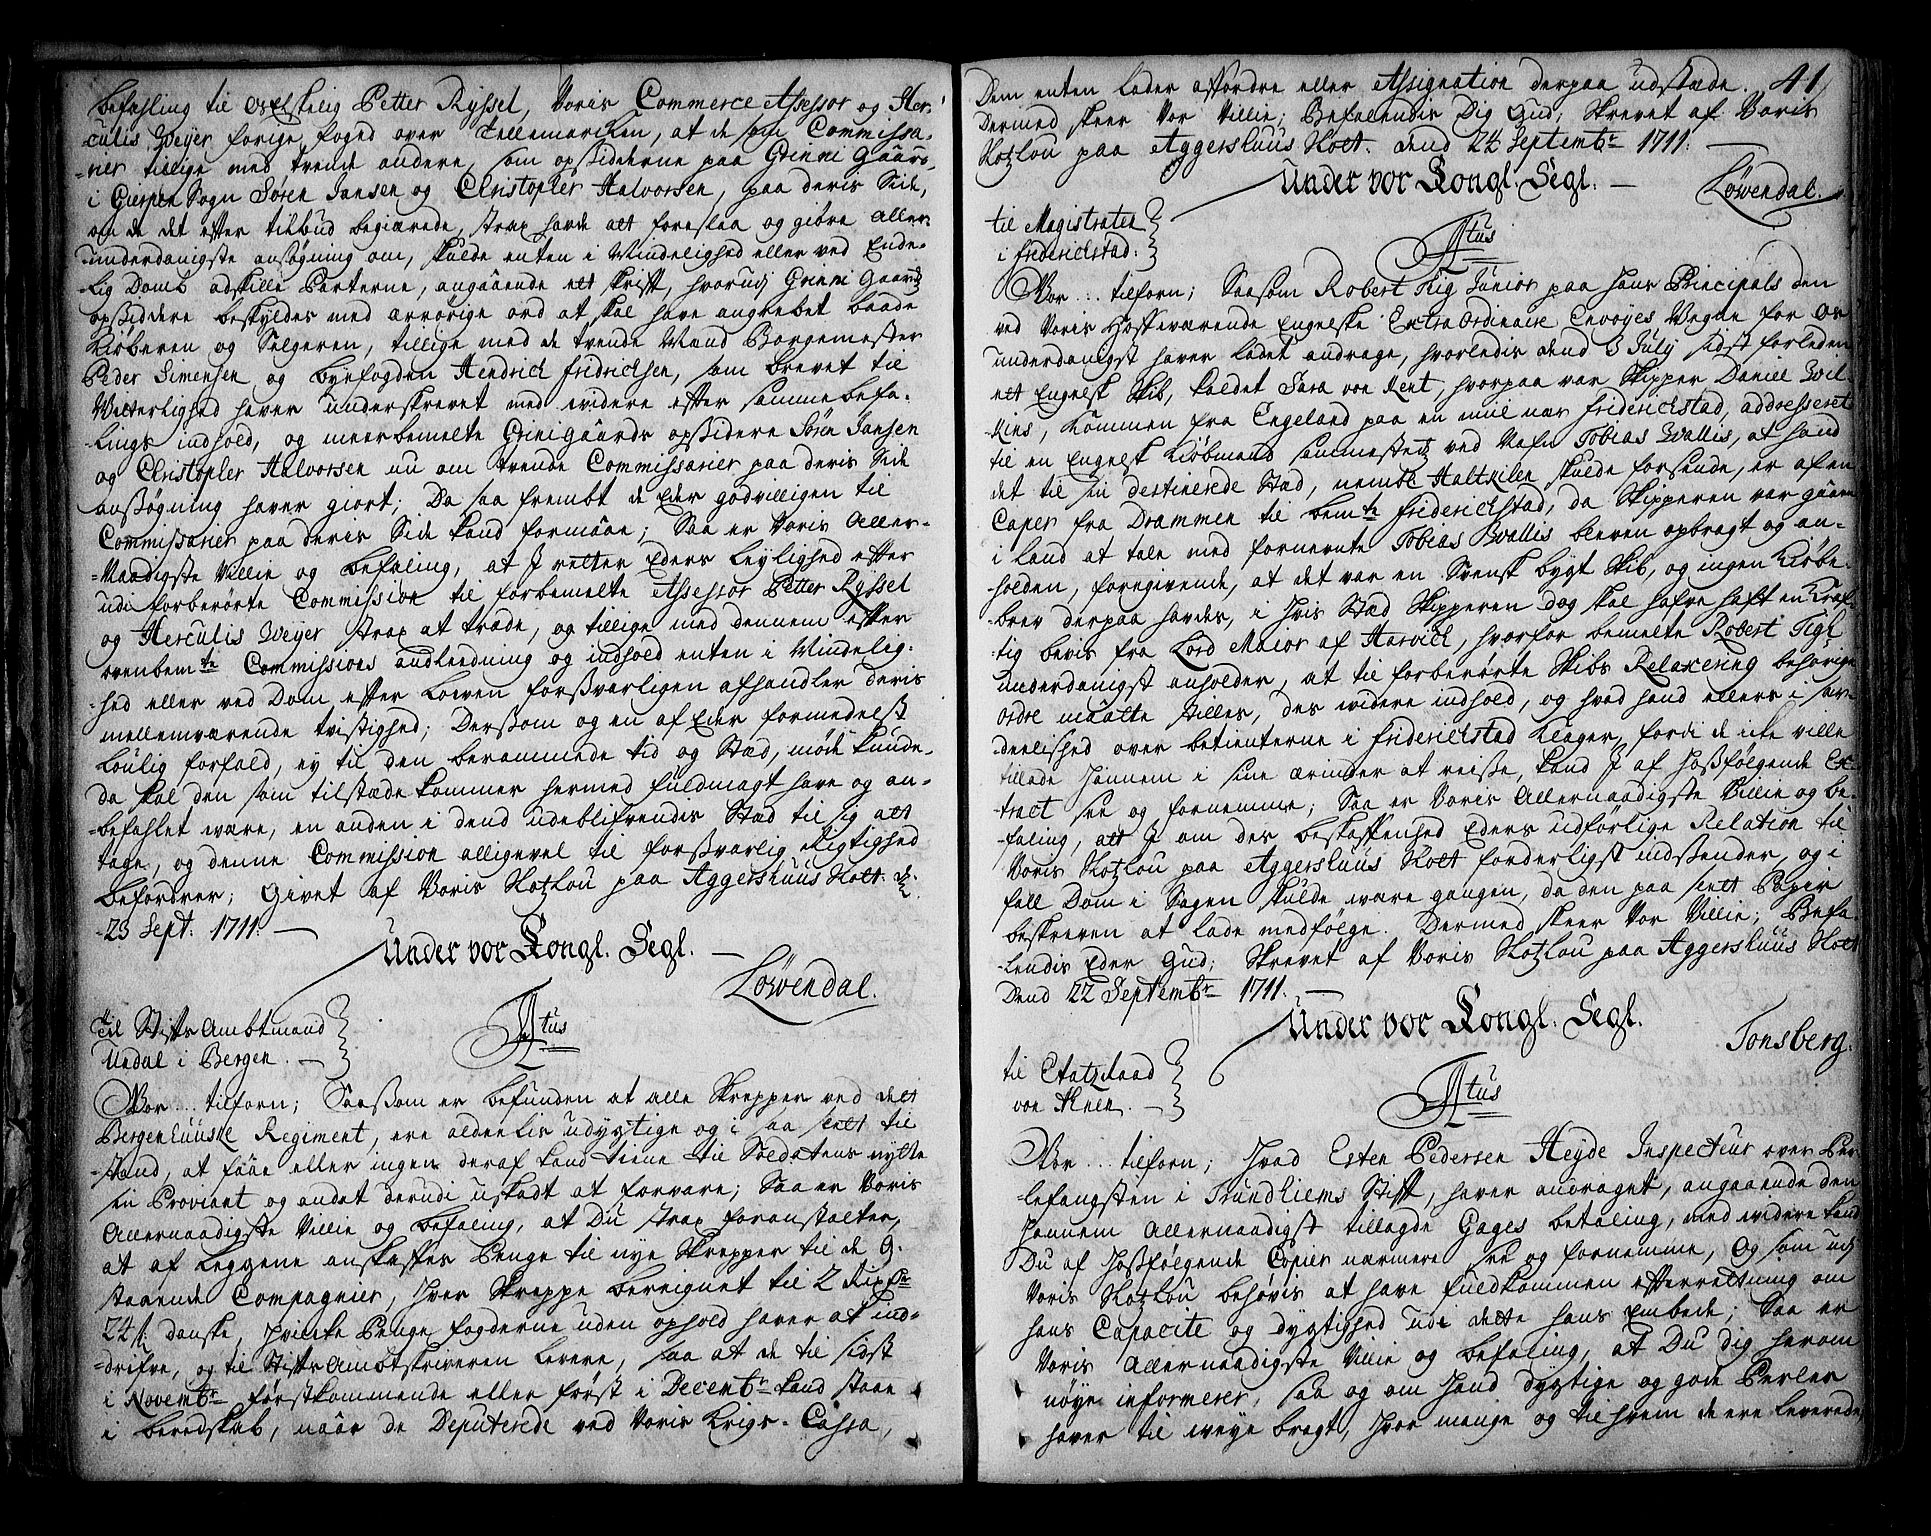 befahling til Os Elskelig Petter Ryssel, Voris Commerce Assessor og Her-
culis Weyer forige foged over Tellemarcken, at de som Commissa-
-rier tillige med trende andere, som opsidderne paa Grinni Gaard,
i Gierpen Sogn Søren Jansen og Christopher Halvorsen, paa deris Side,
om de det efter tilbud begiærede, strax hafde att foreslaa og giøre aller-
underdanigste ansøgning om, skulde enten i Mindelighed eller ved Ende-
-lig Domb adskille Parterne, angaaende ett skrift, hvorudj Grinni Gaards
opsiddere beskyldes med ærrørige ord at skal have angrebet baade
Kiøberen og Selgeren, tillige med de trende Mænd Borgemester
Peder Simensen og byefogden Hendrich Fridrichsen, som brevet til
Vitterlighed haver underskrevet med widere efter sammebefa-
-lings indhold, og meerbemelte Grini gaards opsidere Søren Jansen
og Christopher Halvorsen nu om trende Commissarier paa deris Side
ansøgning haver giort; Da saa frembt de Eder godvilligen til
Commissarier paa deris Side kand formaae; Saa er Voris Aller-
-Naadigste Villie og befaling, at I retter Eders leylighed efter
udi forberørte Commission til forbemelte Assessor Petter Ryssel
og Herculis Weyer strax at træde, og tillige med dennem efter
ovenbemte Commissions anleedning og indhold enten i Mindelig-
-hed eller ved Dom efter Lowen forsvarligen afhandler deris
mellemværende tvistighed; Dersom og en af Eder formedelst
Louflig forfald, ey til den berammede tid og Stæd, møde kunde,
da skal den som tilstæde kommer hermed fuldmagt have og an-
-befahlet være, en anden i dend udeblifvendis Stæd til sig att
tage, og denne Commission alligevel til forsvarlig Rigtighed
befordrer; Givet af Voris Slotzlou paa Aggershuus Slott d.
23 Sept. 1711. —
Under vor Kongl. Segl. —
Løwendal.
Til Stiftz Ambtmand
Undal i Bergen. —
Ttus
Vor... tilforn; Saasom er befunden at alle Skrepper ved dett
Bergenhuuske Regiment, ere aldenlis udygtige og i saa slett til
-stand, at faae eller ingen deraf kand tiene til Soldatens nytte
sin Proviant og andet derudi uskadt at forvare; Saa er Voris
Allernaadigste Villie og befaling, at Du strax foranstalter,
at af leggene anskaffes Penge til nye Skrepper til de 9.
staaende Compagnier, hver Skreppe beregnet til 2 Rixort
24 s. danske, hvilcke Penge fogderne uden ophold haver at ind-
-drifve, og til Stiftz Ambtskriveren levere, saa at de til sidst
i Novembr. førstkommende eller først i Decembr. kand staae
i beredskab, naar de Deputerede ved Voris Krigs-Cassa,
41
Dem enten lader affordre eller Assignation derpaa udstæde.
Dermed skeer Vor Villie; Befalendis Dig Gud; Skrevet af Voris
Slotzlou paa Aggershuus Slott. dend 24 Septembr 1711. —
Under vor Kongl. Segl. —
Løwendal.
til Magistraten
i Friderichstad:
Ttus
Vor... tilforn; Saasom Robert Tigh Junior paa hans Principals den
ved Voris Hofværende Engelske Extra Ordinaire Envoyes Vegne for Os
underdanigst haver ladet andrage, hvorledis dend 3 July sidst forleden
ett Engelsk Skib, kaldet Sara von Kent, hvorpaa var Skipper Daniel Wil-
kins, kommen fra Engeland paa en miil nær Friderichstad, addresseret
til en Engelsk Kiøbmand sammestetz ved Nafn Tobias Wallis, at hand
det til sin destinerede Stæd, nembl. Haltkilen skulde forsende, er af en
Caper fra Drammen til bemte Friderichstad, da Skipperen var gaaen
i land at tale med fornevnte Tobias Wallis bleven opbragt og an-
holden, foregivende, at det var en Svensk bygt Skib, og ingen Kiøbe-
brev derpaa hafdes, i hvis Stæd Skipperen dog skal hafve haft en kraf-
-tig bevis fra Lord Maior af Harvich, hvorfor bemelte Robert Tigh
underdanigst anholder, at til forberørte Skibs Relaxering behørige
ordre maatte stilles, des widere indhold, og hvad hand ellers i sær-
deelished over betienterne i Friderichstad klager, fordi de icke ville
tillade hannem i sine ærinder at reise, kand I af hosfølgende Ex-
-tract see og fornemme; Saa er Voris Allernaadigste Villie og be-
-faling, att I om des beskaffenhed Eders udførlige Relation til
Voris Slotzlou paa Aggershuus Slott forderligst indsender, og i
fall Dom i Sagen skulde være gangen, da den paa slett Papir
beskreven at lade medfølge. Dermed skeer Vor Villie; Befa-
lendis Eder Gud; Skrevet af Voris Slotzlou paa Aggershuus Slott
Dend 22 Septembr 1711. —
Under vor Kongl. Segl.
Tonsberg.
til Etatzraad
von Ahnen. —
Ttus
Vor... tilforn; hvad Esten Pedersen Heyde Inspecteur over Per-
-lefangsten i Trundhiems Stift, haver andraget, angaaende den
hannem Allernaadigst tillagde Gages betaling, med widere kand
Du af hosfølgende Copier nærmere see og fornemme, Og som udj
Voris Slotzlou behøvis at have fuldkommen efterretning om
hans Capacite og dygtighed udi dette hans Embede; Saa er
Voris Allernaadigste Villie og befaling, at Du dig herom
nøye informerer, saa og om hand dygtige og gode Perler
haver til weye bragt, hvor mange og til hvem de ere leverede,